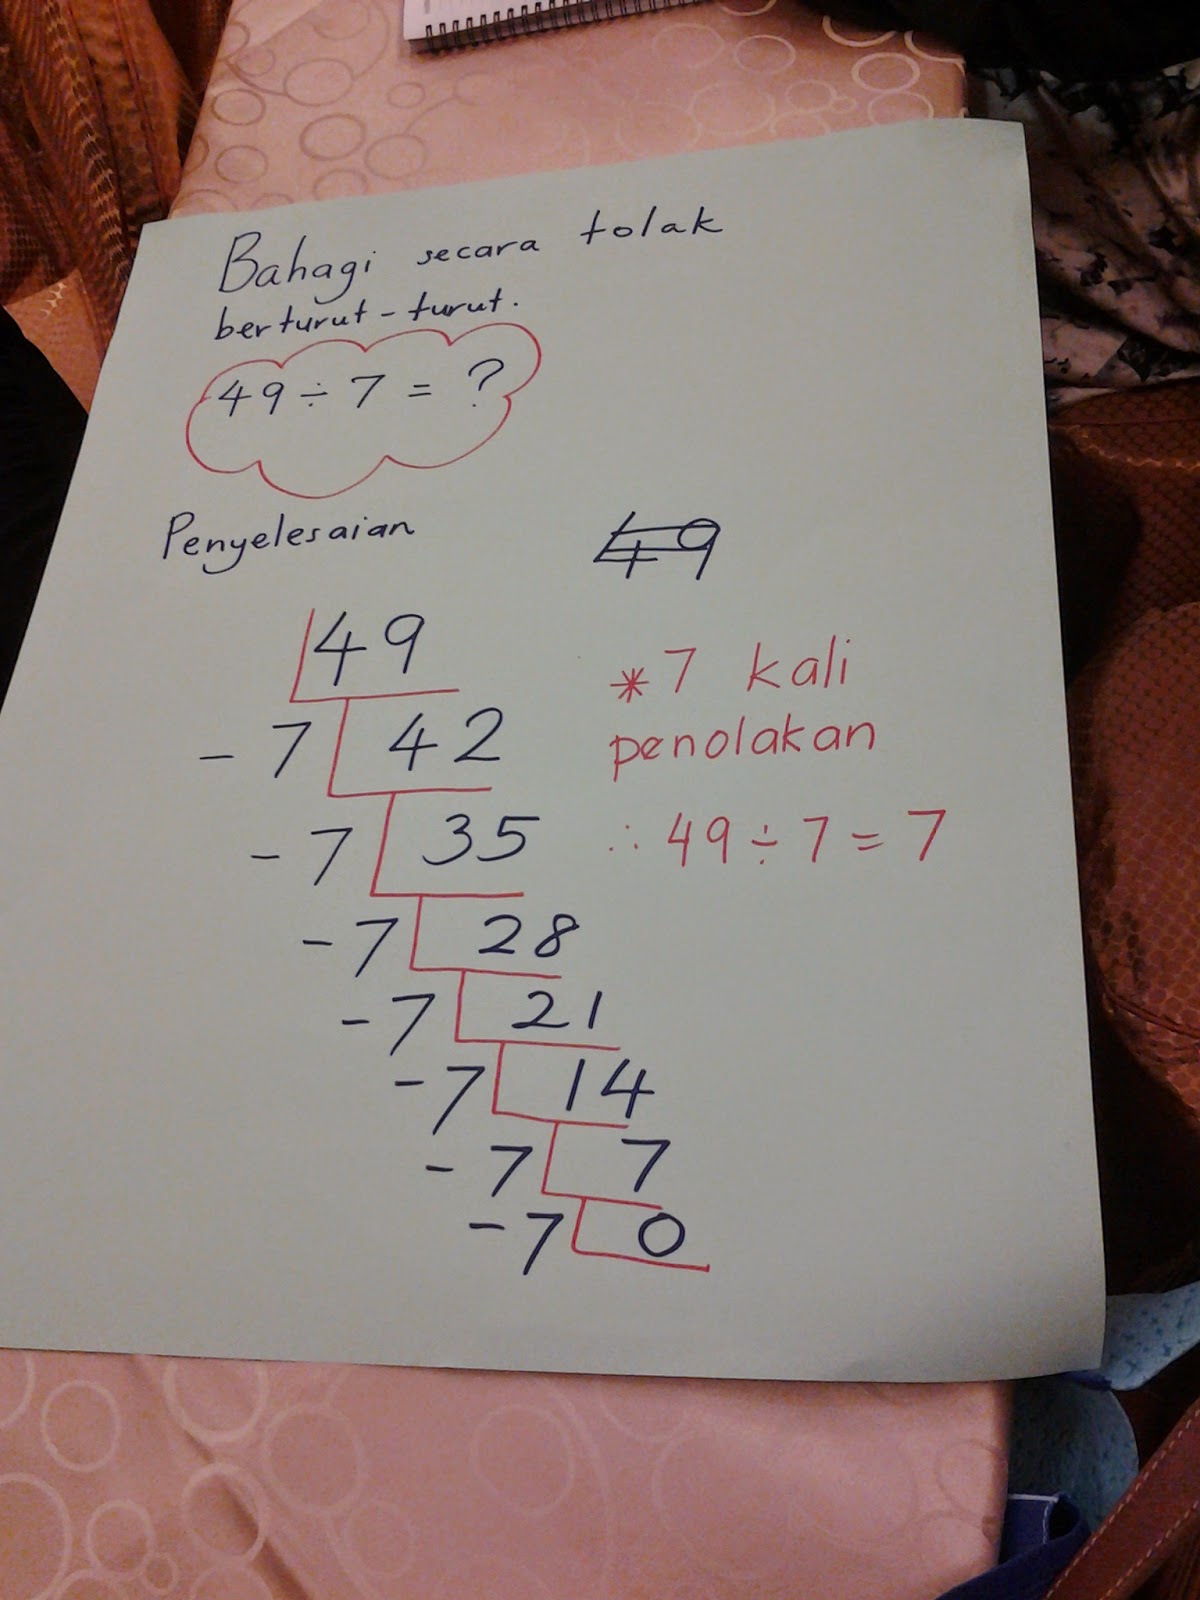 Bahagi secara tolak
berturut-turut.
49 ÷ 7 = ?
Penyelesaian
49
49
- 7 42
- 7 35
- 7 28
- 7 21
- 7 14
- 7 7
- 7 0
* 7 kali
penolakan
∴ 49 ÷ 7 = 7